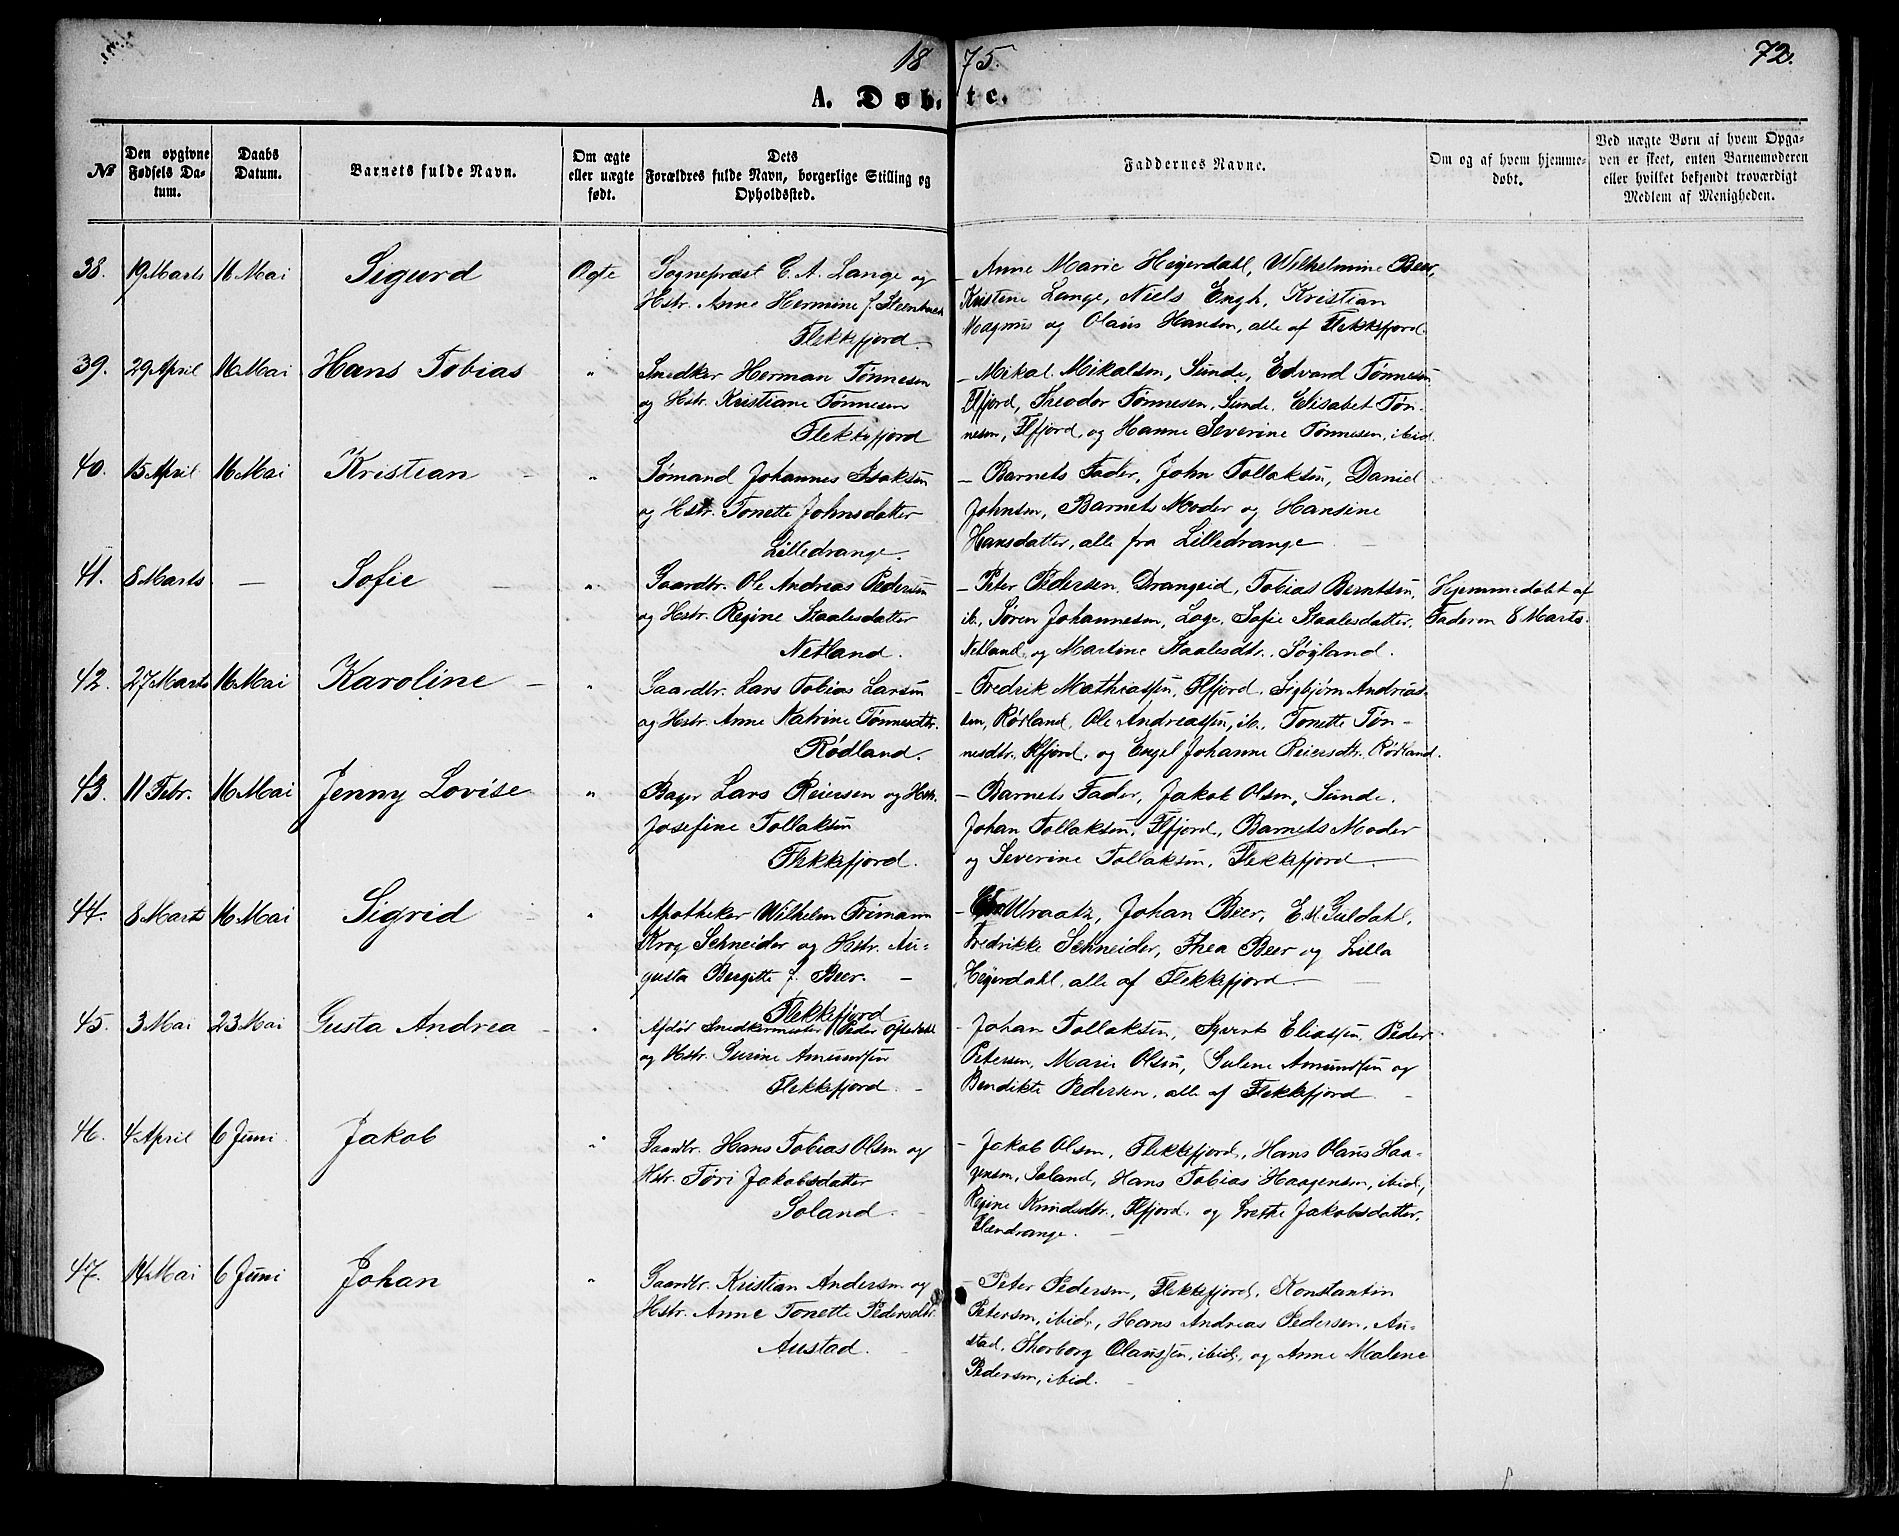 18 75. 72.
A. Døb te.
No
Den opgivne Fødsels Datum.
Daabs Datum.
Barnets fulde Navn.
Om ægte eller uægte født.
Dets Forældres fulde Navn, borgerlige Stilling og Opholdssted.
Faddernes Navne.
Om og af hvem hjemmedøbt.
Ved uægte Børn af hvem Opgaven er skeet, enten Barnemoderen eller hvilket bekjendt troværdigt Medlem af Menigheden.
38. 19 Marts 16 Mai Sigurd Ægte
Sognepræst C. A. Lange og
Hstr. Anne Hermine f. Steenbuch
Flekkefjord.
– Anne Marie Heyerdahl, Wilhelmine Beer,
Kristene Lange, Niels Engh, Kristian
Magnus og Olaus Hansen, alle af Flekkefjord.
39. 29 April 16 Mai Hans Tobias "
Snedker Herman Tønnesen
og Hstr. Kristiane Tønnesen
Flekkefjord
– Mikal Mikalsen, Sunde, Edvard Tønnesen
Flfjord, Theodor Tønnesen, Sunde, Elisabet Tøn-
nesen, Flfjord, og Hanne Severine Tønnesen, ibid.
40. 15 April 16 Mai Kristian – "
Sømand Johannes Isaksen
og Hstr. Tonette Johnsdatter
Lilledrange.
– Barnets Fader, John Tollaksen, Daniel
Johnsen, Barnets Moder og Hansine
Hansdatter, alle fra Lilledrange
41. 8 Marts – Sofie – "
Gaardbr. Ole Andreas Pedersen
og Hstr. Regine Staalesdatter
Netland.
– Peter Pedersen, Drangeid, Tobias Berntsen,
ib., Søren Johannesen, Loge, Sofie Staalesdatter,
Netland og Martine Staalesdtr. Søyland.
Hjemmedøbt af
Faderen 8 Marts.
42. 27 Marts 16 Mai Karoline – "
Gaardbr. Lars Tobias Larsen
og Hstr. Anne Katrine Tønnesdtr.
Rødland.
– Fredrik Mathiassen, Flfjord, Sigbjørn Andreas-
sen, Rørland, Ole Andreassen, ib., Tonette Tøn-
nesdtr. Flfjord, og Engel Johanne Reiersdtr. Rørland.
43. 11 Febr. 16 Mai Jenny Lovise "
Bager Lars Reiersen og Hstr.
Josefine Tollaksen
Flekkefjord.
– Barnets Fader, Jakob Olsen, Sunde,
Johan Tollaksen, Flfjord, Barnets Moder
og Severine Tollaksen, Flekkefjord
44. 8 Marts 16 Mai Sigrid – "
Apotheker Wilhelm Frimann
Krog Schneider og Hstr. Au-
gusta Bergitte f. Beer. –
Flekkefjord
– Johan Beer, E. M. Guldahl,
Fredrikke Schneider, Thea Beer og Lilla
Heyerdahl, alle af Flekkefjord.
45. 3 Mai 23 Mai Gusta Andrea – "
Afdør Snedkermester Peder
og Hstr. Gurine Amundsen
Flekkefjord. –
– Johan Tollaksen, Syvert Eliassen, Peder
Petersen, Marie Olsen, Gulene Amundsen og
Bendikte Pedersen, alle af Flekkefjord
46. 4 April 6 Juni Jakob "
Gaardbr. Hans Tobias Olsen og
Hstr. Tøri Jakobsdatter
Soland.
– Jakob Olsen, Flekkefjord, Hans Olaus Haa-
gensen, Soland, Hans Tobias Haagensen, ibid.,
Regine Knudsdtr. Flfjord. og Grethe Jakobsdatter,
47. 14 Mai 6 Juni Johan "
Gaardbr. Kristian Andersen og
Hstr. Anne Tonette Pedersdtr.
Austad.
– Peter Pedersen, Flekkefjord, Konstantin
Petersen, ibid., Hans Andreas Pedersen, Au-
stad, Thorborg Olaussen, ibid., og Anne Malene
Pedersen, ibid.